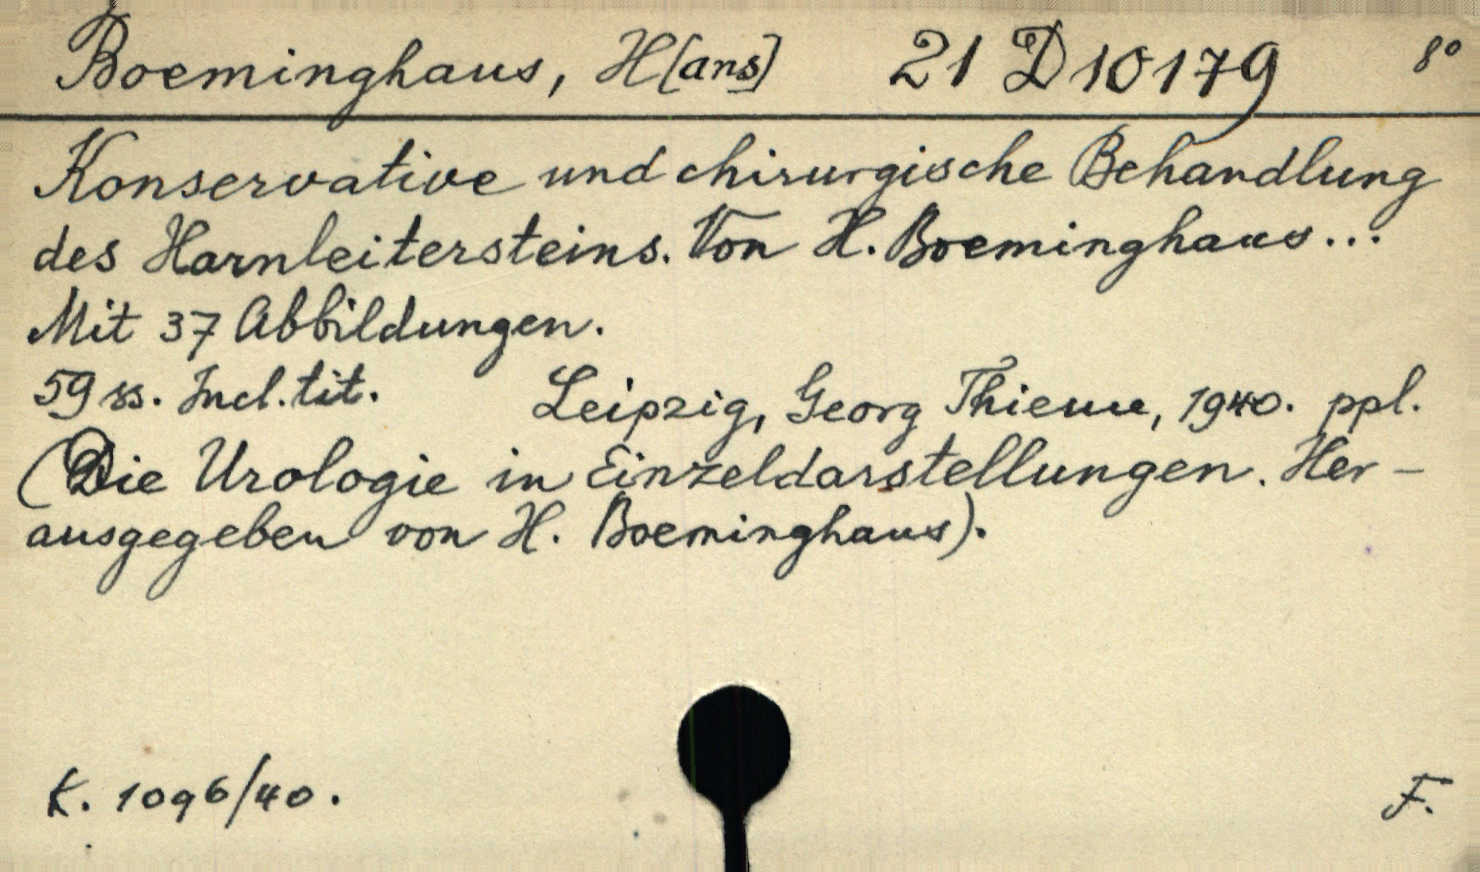 Boeminghaus, H[ans] 21 D 10179 8°
Konservative und chirurgische Behandlung
des Harnleitersteins. Von H. Boeminghaus...
Mit 37 Abbildungen.
59 ss. Incl. tit. Leipzig, Georg Thieme, 1940. ppl.
(Die Urologie in Einzeldarstellungen. Her-
ausgegeben von H. Boeminghaus).
K. 1096/40. F.